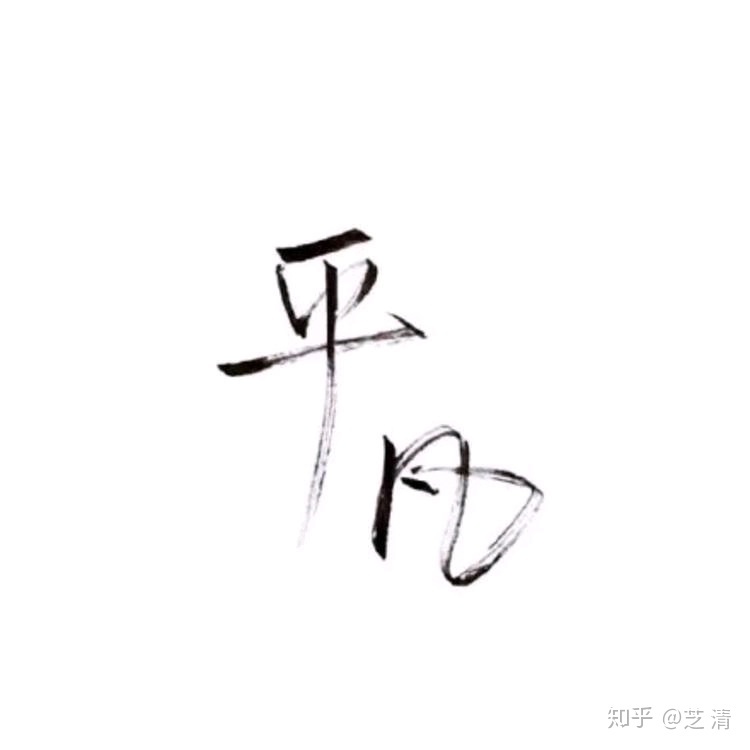 平凡
知乎 @芝清